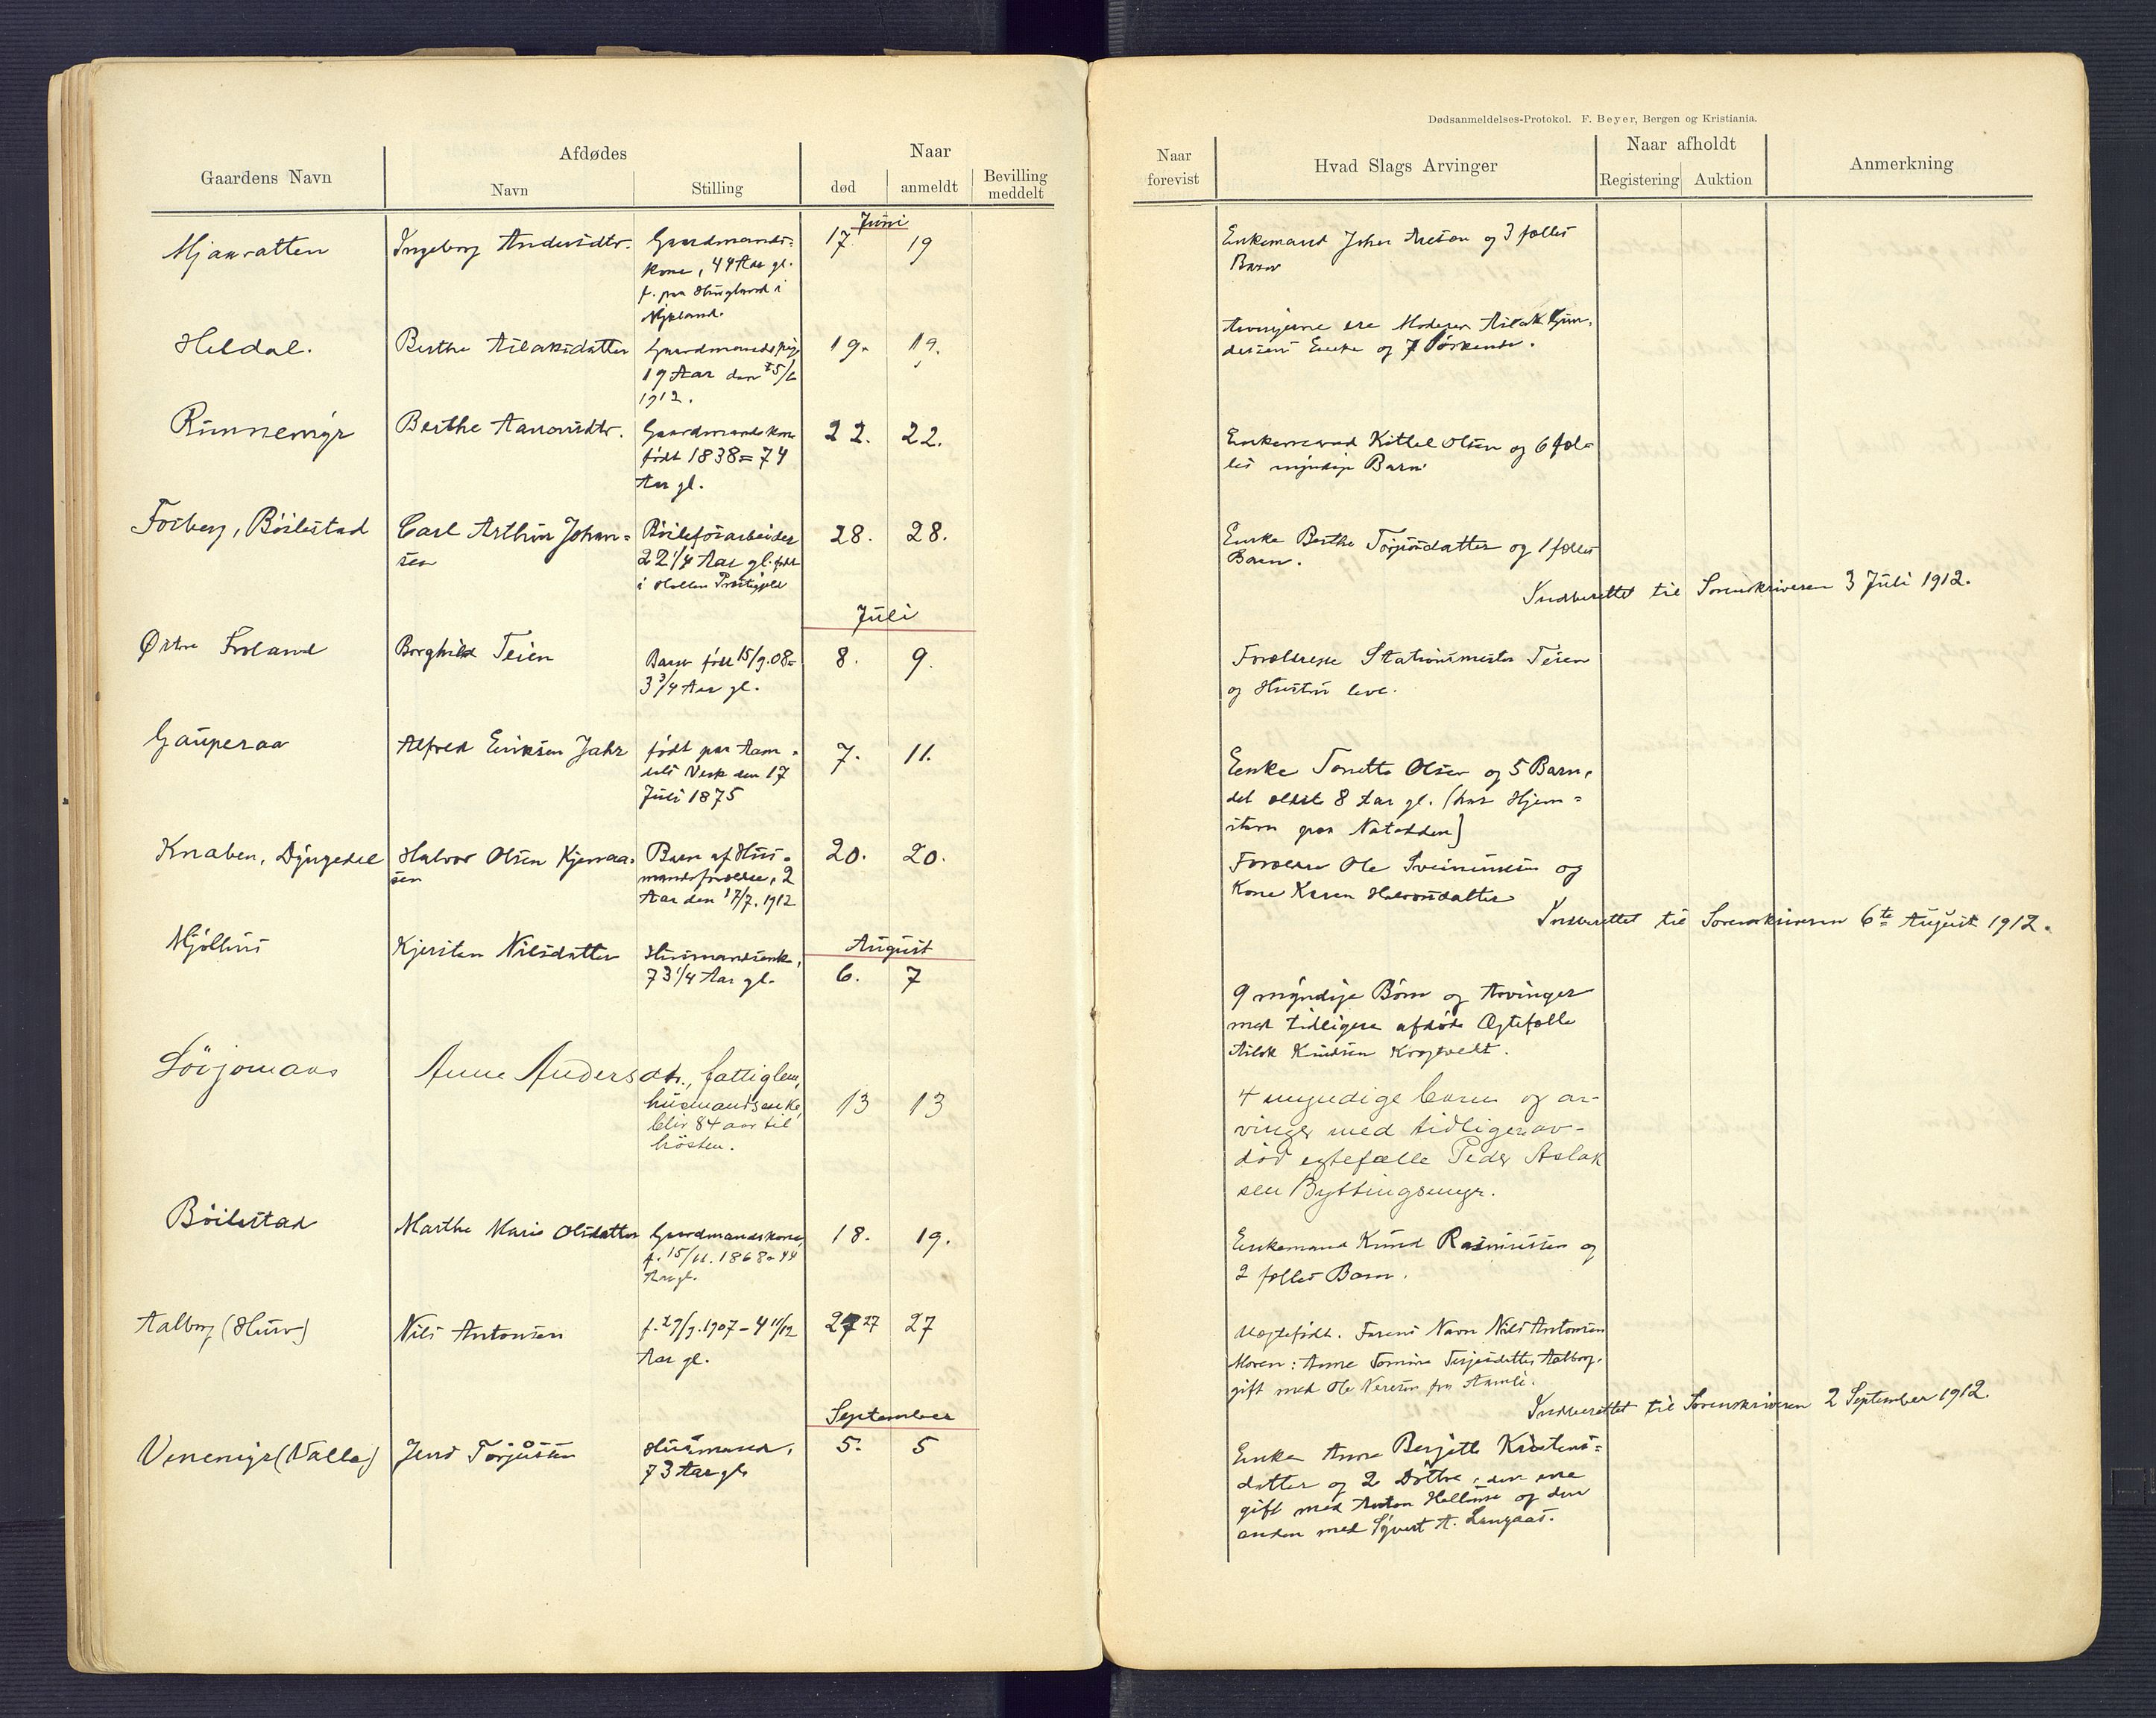 Dødsanmeldelses-Protokol. F. Beyer, Bergen og Kristiania.
Gaardens Navn
Afdødes
Navn
Stilling
Naar
død
anmeldt
Bevilling
meddelt
Naar
forevist
Hvad Slags Arvinger
Naar afholdt
Registering
Auktion
Anmerkning
Juni
Mjaavatten
Ingeborg Andersdtr.
Gaardmands=
kone, 44 Aar gl.
f. paa Hugland i
17.
19
Enkemand Johan og 3 fælles
Barn
Heldal.
Berthe Aslaksdatter
Gaardmandspige
19 Aar den 25/6
1912.
19.
19.
Arvingerne ere Moderen Aslak
Enke og 7 Søskende.
Runnemyr
Berthe Aanonsdtr.
Gaardmandskone
født 1838 = 74
Aar gl.
22.
22.
Enkemand Kittel Olsen og 6 fæl=
les myndige Barn.
Forberg, Böilestad
Carl Arthur Johan=
sen
Böilefosarbeider
22 1/4 Aar gl. født
i Hollen Præstegjeld
28.
28.
Enke Berthe Torjusdatter og 1 fælles
Barn.
Indberettet til Sorenskriveren 3 Juli 1912.
Juli
Østre Froland
Borghild Teien
Barn født 15/9.08=
3 3/4 Aar gl.
8.
9.
Forældrene Stationsmester Teien
og Hustru leve.
Gauperaa
Alfred Eriksen Jahr
født paa Aam=
dals Verk den 17
Juli 1875
7.
11.
Enke Tonette Olsen og 5 Barn,
det ældste 8 Aar gl. (har Hjem=
stavn paa Notodden)
Knaben, Dyngedel
Halvor Olsen Kjennaa=
sen
Barn af Hus=
mandsforældre, 2
Aar den 17/7. 1912
20.
20.
Forældre Ole Sveinunsen og
Kone Karen Halvorsdatter
Indberettet til Sorenskriveren 6te August 1912.
August
Mjölhus
Kjersten Nilsdatter
Husmandsenke,
73 1/4 Aar gl.
6.
7
9 myndige Børn og Arvinger
med tidligere afdøde Ægtefælle
Aslak Knudsen
Anne Andersdtr., fattiglem,
husmandsenke,
blir 84 aar til
hösten.
13
13
4 myndige barn og ar-
vinger med tidligere av-
död egtefælle Peder Aslak
sen Byttingsmyr.
Böilestad
Marthe Marie Olsdatter
Gaardmandskone,
f. 15/11. 1868 = 44
Aar gl.
18.
19.
Enkemand Knud Rasmussen og
2 fælles Barn.
Aalborg (Hurv)
Nils Antonsen
f. 29/9. 1907 - 4 11/12
Aar gl.
27 27
27
Uægtefødt. Farens Navn Nils Antonsen
Moren: Anne Tomine Terjesdatter Aalborg,
gift med Ole fra Aamli.
Indberettet til Sorenskriveren 2 September 1912.
September
Venemyr (Valle)
Jens Torjussen
Husmand,
73 Aar gl.
5.
5
Enke Anne Berjette Kristens=
datter og 2 Døttre, den ene
gift med Anton og den
anden med Syvert A. Langaas.